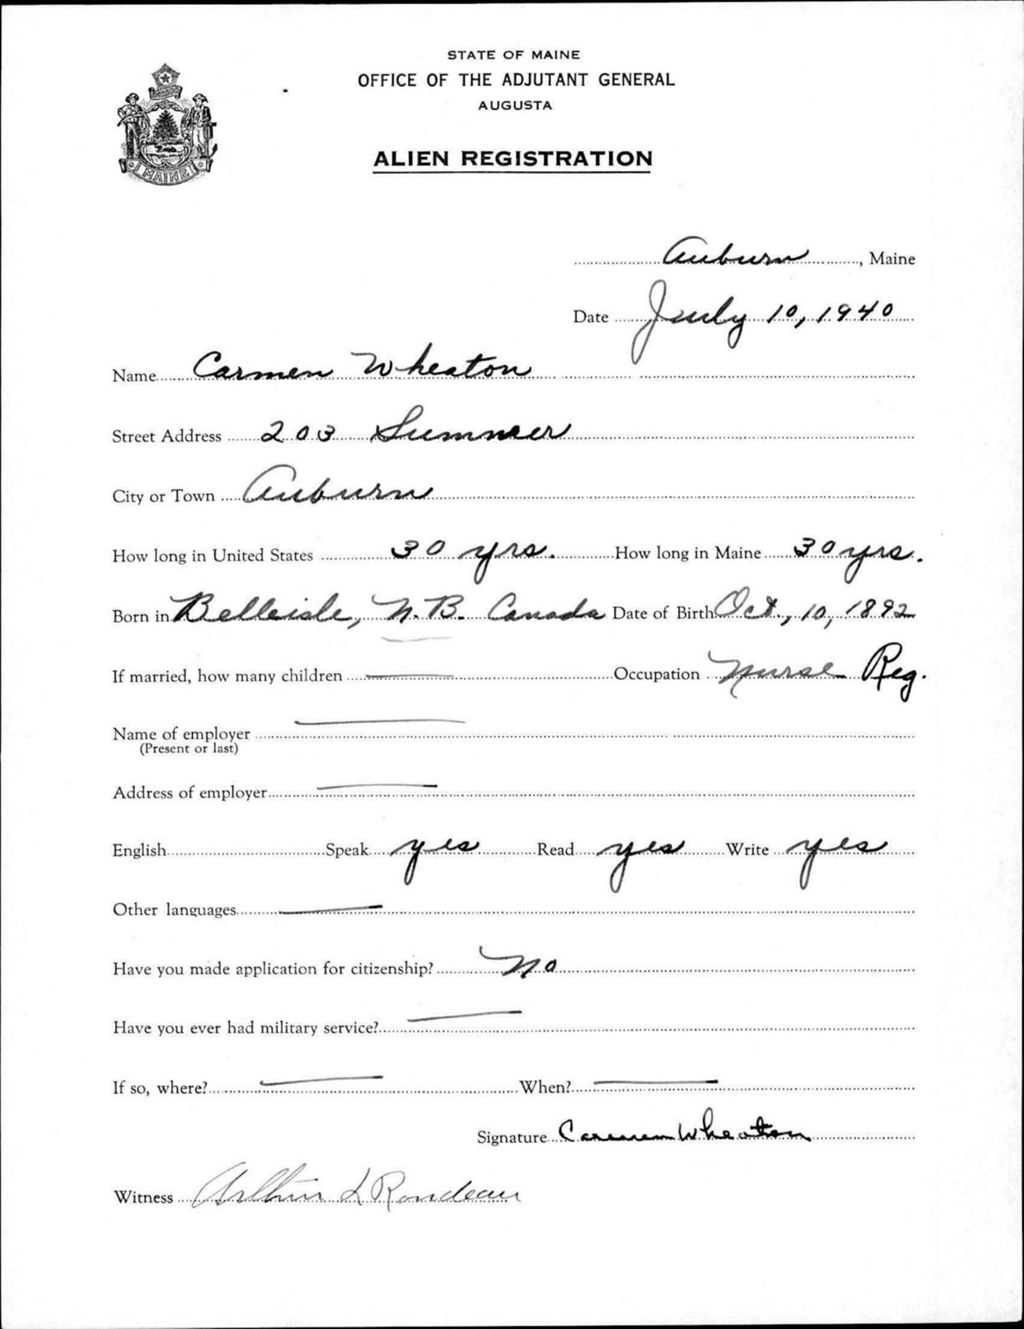 STATE OF MAINE
OFFICE OF THE ADJUTANT GENERAL
AUGUSTA
ALIEN REGISTRATION
MAINE
Auburn, Maine
Date July 10, 1940
Name Carmen Wheaton
Street Address 203 Summer
City or Town Auburn
How long in United States 30 yrs. How long in Maine 30 yrs.
Born in Belleisle, N.B. Canada Date of Birth Oct, 10, 1892
If married, how many children — Occupation Nurse Reg.
Name of employer —
(Present or last)
Address of employer —
English Speak yes Read yes Write yes
Other languages —
Have you made application for citizenship? No
Have you ever had military service? —
If so, where? — When? —
Signature Carmen Wheaton
Witness Arthur L Rondeau